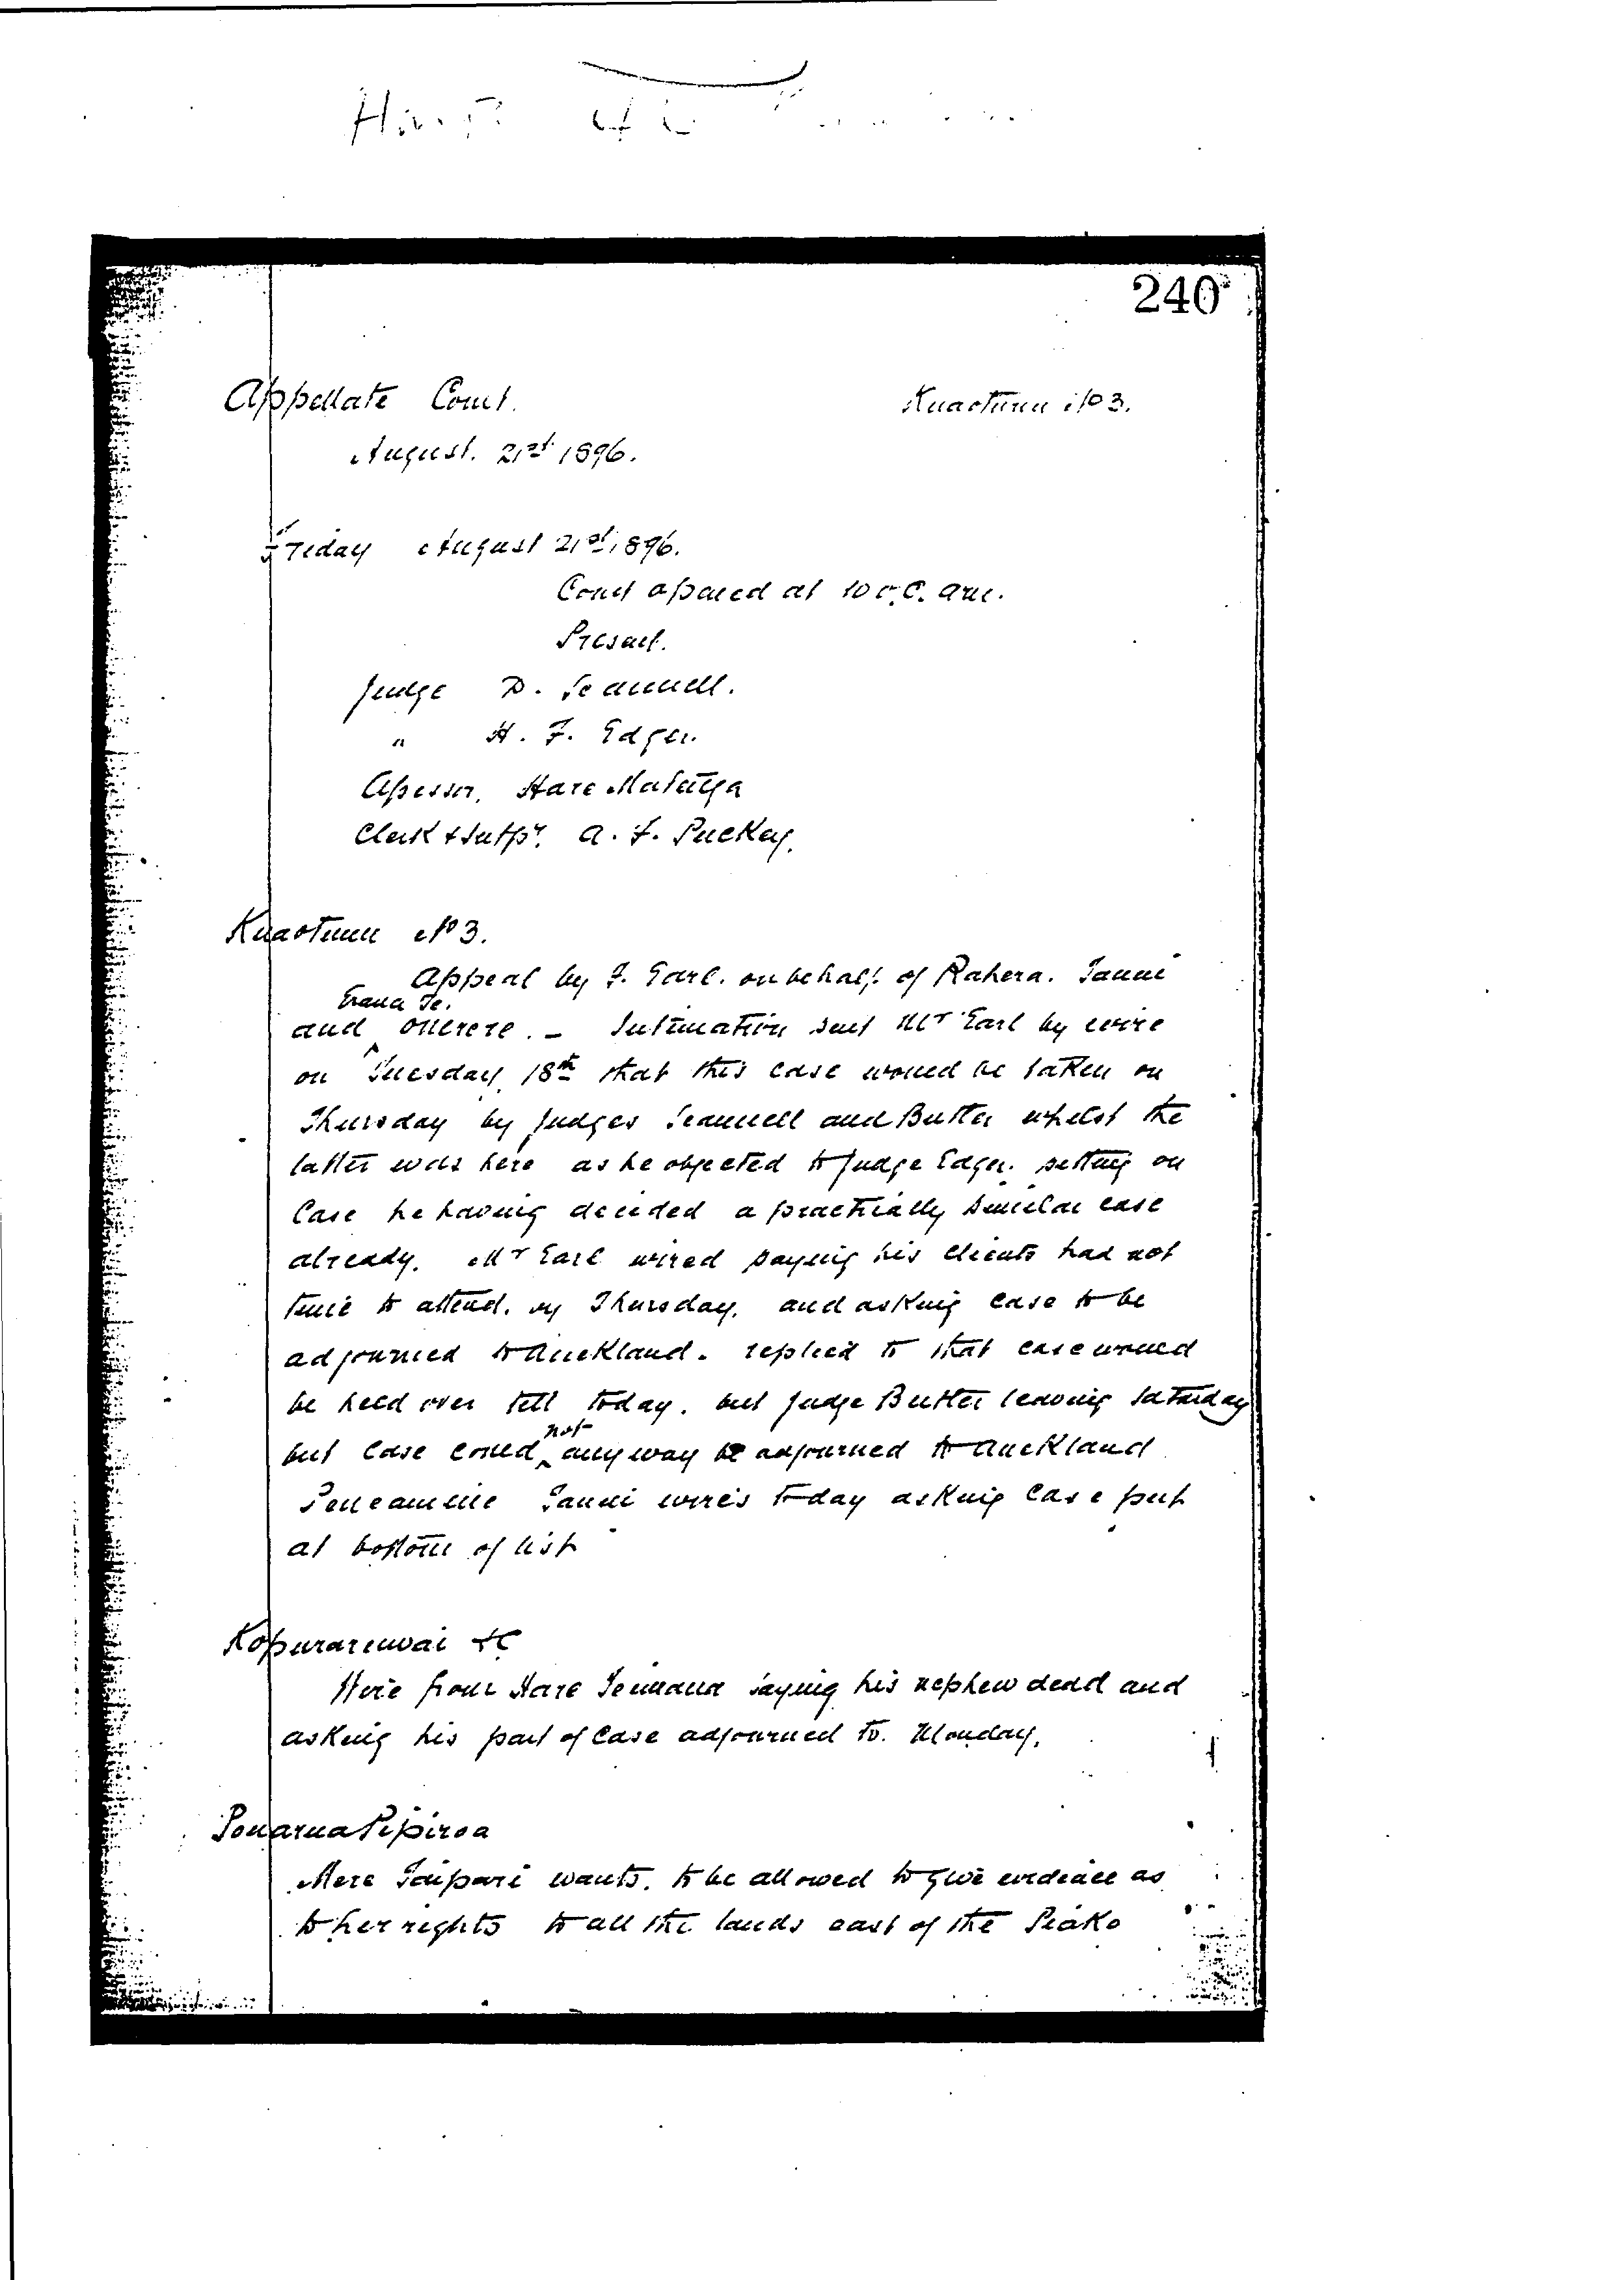 240
Appellate Court. Kuaotunu No 3.
August. 21st 1896.
Friday August 21st, 1896.
Court opened at 10 o.C. am.
Present.
Judge D. Scannell.
" H. F. Edger.
Assessor, Hare Matenga
Clerk & Intpr. A. F. Puckey.
Kuaotunu No 3.
Appeal by F. Earl. on behalf of Rahera. Tanui
Erana Te.
and Onerere. - Intimation sent Mr Earl by wire
on Tuesday 18th that this case would be taken on
Thursday by Judges Scannell and Butler whilst the
latter was here as he objected to Judge Edger. sitting on
Case he having decided a practically similar case
already. Mr Earl wired saying his clients had not
time to attend. by Thursday. and asking case to be
adjourned to Auckland. replied to that case would
be held over till today. but Judge Butler leaving Saturday
not
but Case could anyway be adjourned to Auckland
Peneamine Tanui wires today asking Case put
at bottom of list
Kopuraruwai &c
Wire from Hare Teimana saying his nephew dead and
asking his part of Case adjourned to. Monday.
Pouarua Pipiroa
Mere Taipari wants. to be allowed to give evidence as
to her rights to all the lands east of the Piako